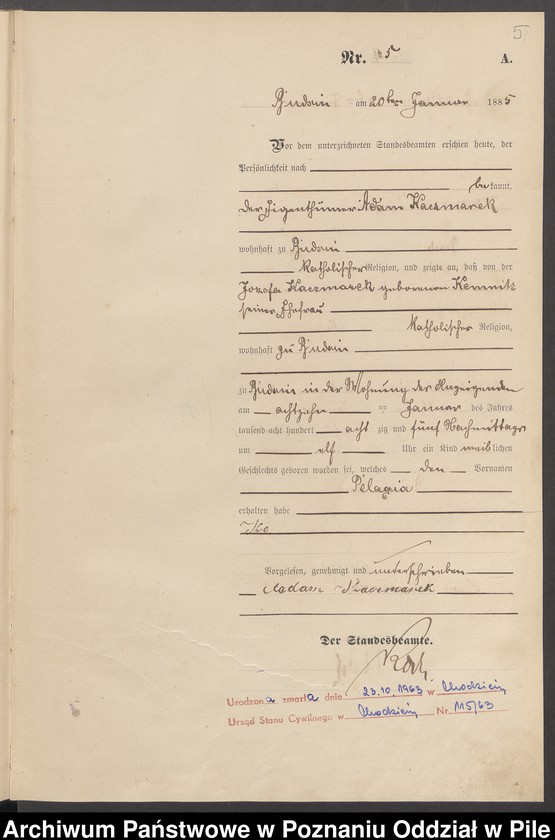 5
Nr. 5 A.
Budsin am 20ten Januar 1885
Vor dem unterzeichneten Standesbeamten erschien heute, der
Persönlichkeit nach
bekannt,
der Eigenthümer Adam Kaczmarek
wohnhaft zu Budsin
katholischer Religion, und zeigte an, daß von der
Jozefa Kaczmarek geborenen Kemnitz
seiner Ehefrau
katholischer Religion,
wohnhaft zu Budsin
zu Budsin in der Wohnung des Anzeigenden
am achtzehn ten Januar des Jahres
tausend acht hundert acht zig und fünf Nachmittags
um elf Uhr ein Kind weiblichen
Geschlechts geboren worden sei, welches den Vornamen
Pelagia
erhalten habe
Vorgelesen, genehmigt und unterschrieben
Aadam Kaczmarek
Der Standesbeamte.
Urodzona zmarła dnia 23.10.1963 w Chodzież
Urząd Stanu Cywilnego w Chodzież Nr 115/63
Archiwum Państwowe w Poznaniu Oddział w Pile